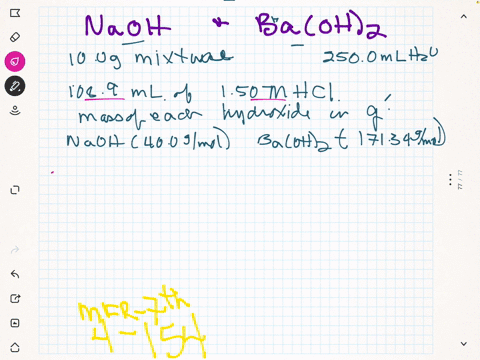 NaOH & Ba(OH)2
10.0g mixture 250.0mL H2O
108.9 mL of 1.50M HCl.
mass of each hydroxide in g!
NaOH (40.0g/mol) Ba(OH)2 (171.34g/mol)
77 / 77
MFR-7th
4-154